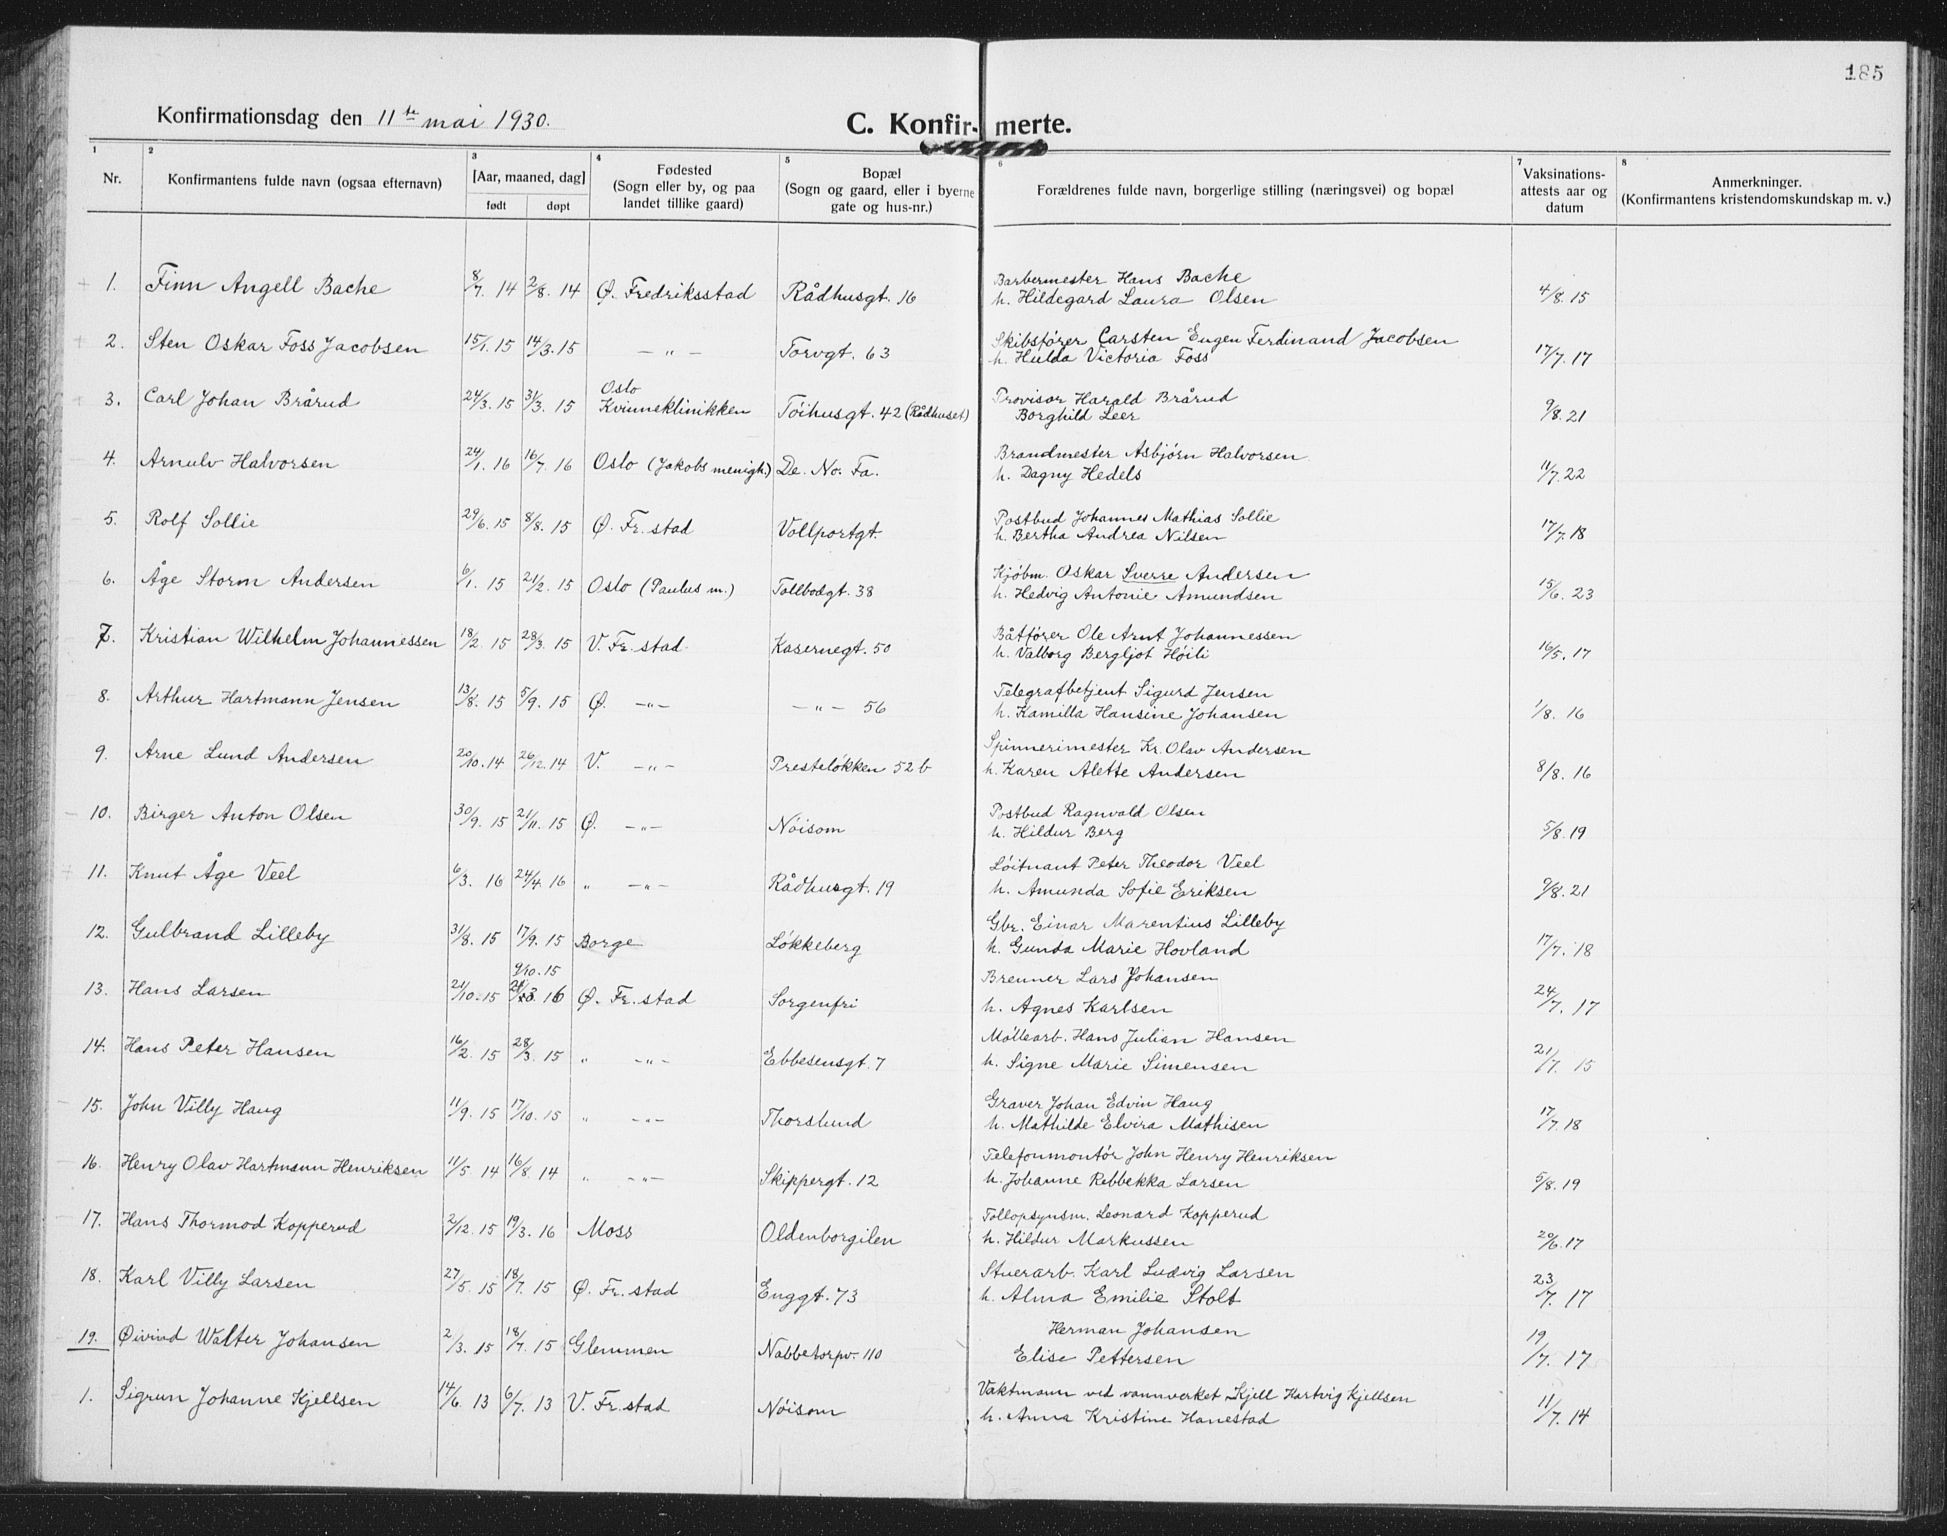 185
Konfirmationsdag den 11te mai 1930.
C. Konfirmerte.
1 2 3 4 5 6 7 8
Nr.
Konfirmantens fulde navn (ogsaa efternavn)
[Aar, maaned, dag]
født døpt
Fødested
(Sogn eller by, og paa
landet tillike gaard)
Bopæl
(Sogn og gaard, eller i byerne
gate og hus-nr.)
Forældrenes fulde navn, borgerlige stilling (næringsvei) og bopæl
Vaksinations-
attests aar og
datum
Anmerkninger.
(Konfirmantens kristendomskundskap m. v.)
1. Finn Angell Bache 8/7. 14 2/8. 14 Ø. Fredriksstad Rådhusgt. 16 Barbermester Hans Bache
h. Hildegard Laura Olsen 4/8. 15
2. Sten Oskar Foss Jacobsen 15/1. 15 14/3. 15 — " — Torvgt. 63 Skibsfører Carsten Eugen Ferdinand Jacobsen
h. Hulda Victoria Foss 17/7. 17
3. Carl Johan Brårud 24/3. 15 31/3. 15 Oslo Kvinneklinikken Tøihusgt. 42 (Rådhuset) Provisor Harald Brårud
Borghild Leer 9/8. 21
4. Arnulv Halvorsen 24/1. 16 16/7. 16 Oslo (Jakobs menigh.) De. No. Fa. Brandmester Asbjørn Halvorsen
h. Dagny Hedels 11/7. 22
5. Rolf Sollie 29/6. 15 8/8. 15 Ø. Fr. stad Vollportgt. Postbud Johannes Mathias Sollie
h. Bertha Andrea Nilsen 17/7. 18
6. Åge Storm Andersen 6/1. 15 21/2. 15 Oslo (Paulus m.) Tollbodgt. 38 Kjøbm. Oskar Sverre Andersen
h. Hedvig Antonie Amundsen 15/6. 23
7. Kristian Wilhelm Johannessen 18/2. 15 28/3. 15 V. Fr. stad Kasernegt. 50 Båtfører Ole Arnt Johannessen
h. Valborg Bergljot Høili 16/5. 17
8. Arthur Hartmann Jensen 13/8. 15 5/9. 15 Ø. — " — — " — 56 Telegrafbetjent Sigurd Jensen
h. Kamilla Hansine Johansen 1/8. 16
9. Arne Lund Andersen 20/10. 14 26/12. 14 V. — " — Presteløkken 52 b Spinnerimester Kr. Olav Andersen
h. Karen Alette Andersen 8/8. 16
10. Birger Anton Olsen 30/9. 15 21/11. 15 Ø. — " — Nøisom Postbud Ragnvald Olsen
h. Hildur Berg 5/8. 19
11. Knut Åge Veel 6/3. 16 24/4. 16 " — " — Rådhusgt. 19 Løitnant Peter Theodor Veel
h. Amunda Sofie Eriksen 9/8. 21
12. Gulbrand Lilleby 31/8. 15 17/9. 15 Borge Løkkeberg Gbr. Einar Marentius Lilleby
h. Gunda Marie Hovland 17/7. 18
13. Hans Larsen 21/10. 15 9/10. 15 3 16 Ø. Fr. stad Sorgenfri Brenner Lars Johansen
h. Agnes Karlsen 24/7. 17
14. Hans Peter Hansen 16/2. 15 28/3. 15 " — " — Ebbesensgt. 7 Møllearb. Hans Julian Hansen
h. Signe Marie Simensen 21/7. 15
15. John Villy Haug 11/9. 15 17/10. 15 " — " — Thorslund Graver Johan Edvin Haug
h. Mathilde Elvira Mathisen 17/7. 18
16. Henry Olav Hartmann Henriksen 11/5. 14 16/8. 14 " — " — Skippergt. 12 Telefonmontør John Henry Henriksen
h. Johanne Rebbekka Larsen 5/8. 19
17. Hans Thormod Kopperud 2/12. 15 19/3. 16 Moss Oldenborgilen Tollopsynsm. Leonard Kopperud
h. Hildur Markussen 20/6. 17
18. Karl Villy Larsen 27/5. 15 18/7. 15 Ø. Fr. stad Enggt. 73 Stuerarb. Karl Ludvig Larsen
h. Alma Emilie Stolt 23/7. 17
19. Øivind Walter Johansen 2/3. 15 18/7. 15 Glemmen Nabbetorpv. 110 Herman Johansen
Elise Pettersen 19/7. 17
1. Sigrun Johanne Kjellsen 14/6. 13 6/7. 13 V. Fr. stad Nøisom Vaktmann ved vannverket Kjell Hartvig Kjellsen
h. Anna Kristine Hanestad 11/7. 14